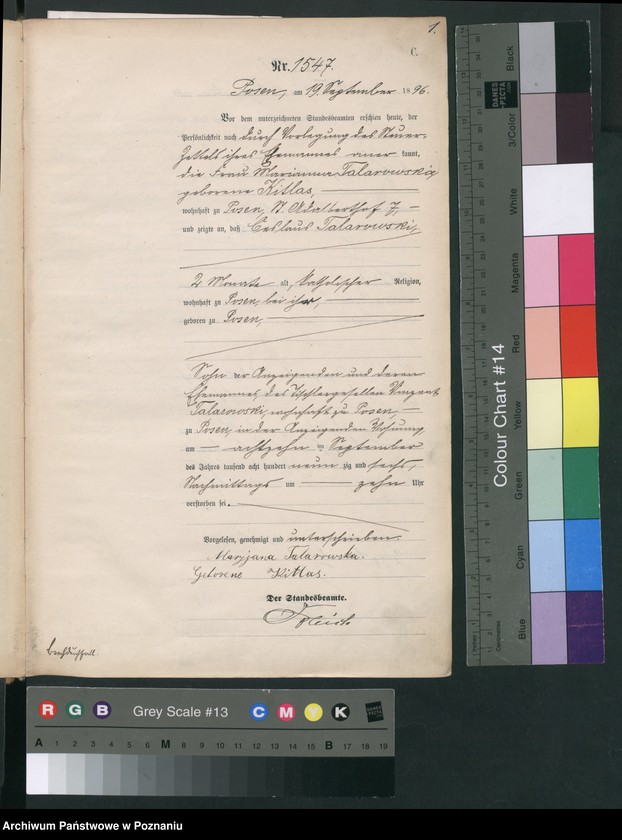 1.
C.
Nr. 1547.
Posen, am 19. September 1896.
Vor dem unterzeichneten Standesbeamten erschien heute, der
Persönlichkeit nach durch Vorlegung des Steuer-
zettels ihres Ehemannes anerkannt,
die Frau Marianna Talarowska
geborene Kitlas,
wohnhaft zu Posen, St. Adalberthof 7,
und zeigte an, daß Ceslaus Talarowski,
2 Monate alt, katholischer Religion,
wohnhaft zu Posen, bei ihr,
geboren zu Posen,
Sohn der Anzeigenden und deren
Ehemannes des Tischlergesellen Vinzent
Talarowski, wohnhaft zu Posen,
zu Posen, in der Anzeigenden Wohnung
am achtzehn ten September
des Jahres tausend acht hundert neunzig und sechs,
Nachmittags um zehn Uhr
verstorben sei.
Vorgelesen, genehmigt und unterschrieben.
Maryjana Talarowska.
Geborene Kitlas.
Der Standesbeamte.
Brechdurchfall
Colour Chart #14
Black
3/Color
White
Magenta
Red
Yellow
Green
Cyan
Blue
DANES
PICTA
Inches
Centimetres
R G B Grey Scale #13 C M Y K
A 1 2 3 4 5 6 M 8 9 10 11 12 13 14 15 B 17 18 19
Archiwum Państwowe w Poznaniu